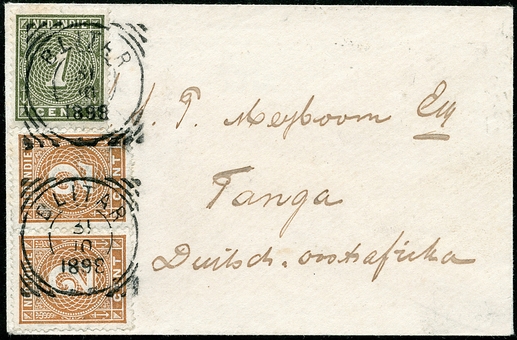 NED. INDIE
1
CENT
BLITAR
31
10
1898
NED. INDIE
2
CENT
BLITAR
31
10
1898
NED. INDIE
2
CENT
P. Meyboom Esq
Tanga
Duitsch-oostafrika